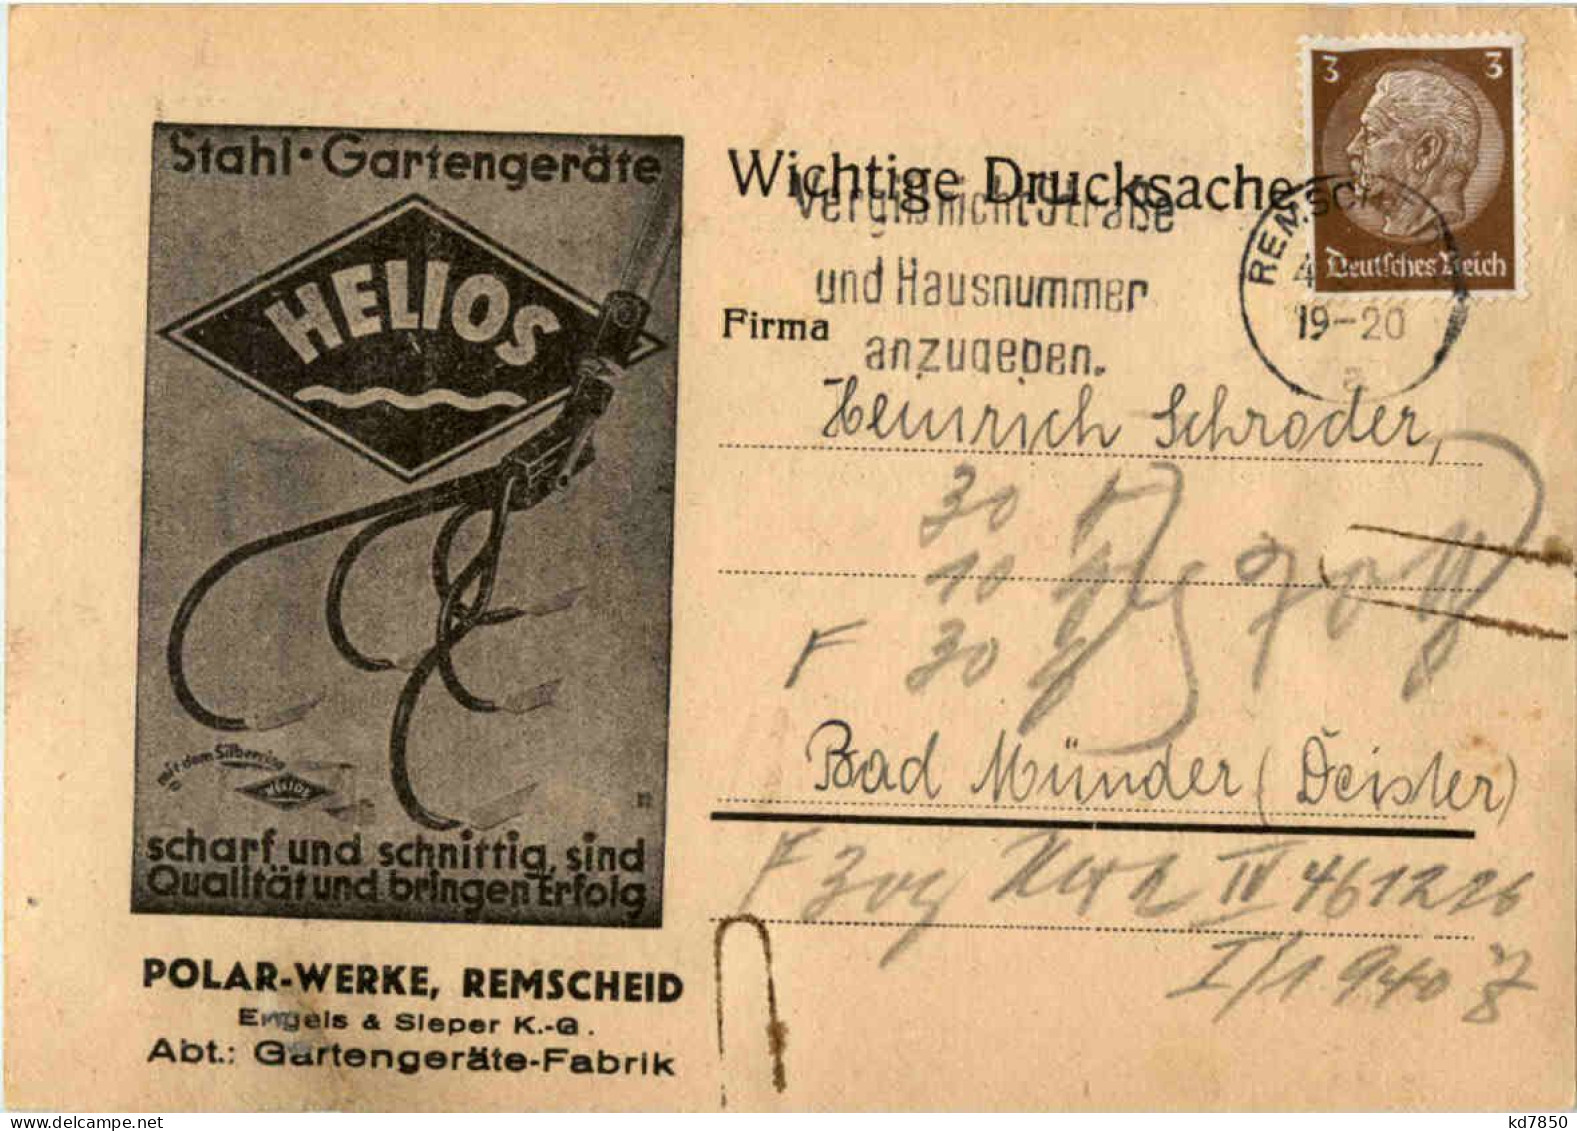 Stahl·Gartengeräte
HELIOS
mit dem Silberring
HELIOS
scharf und schnittig, sind
Qualität und bringen Erfolg
POLAR-WERKE, REMSCHEID
Engels & Sieper K.-G.
Abt.: Gartengeräte-Fabrik
3 3
Deutsches Reich
Wichtige Drucksache
Vergiß nicht Straße
und Hausnummer
anzugeben.
REMSCH
4
19-20
a
Firma
Heinrich Schröder,
30
10
F 30
Bad Münder (Deister)
F IV 461226
I/1.940
delcampe.net
kd7850